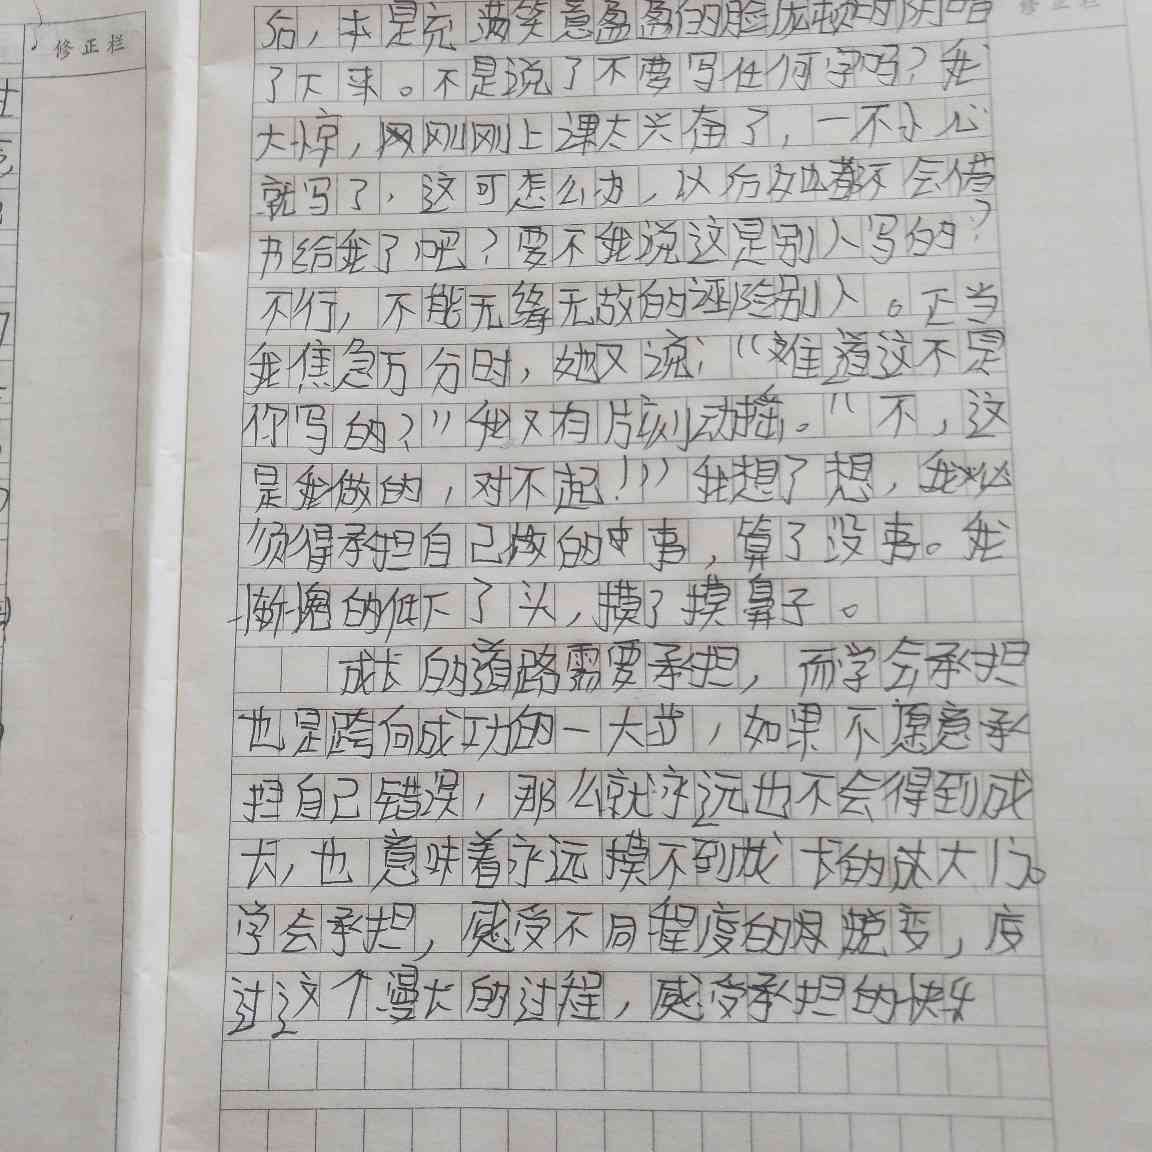 修正栏
修正栏
后，本是充满笑意盈盈的脸庞顿时阴暗
了下来。不是说了不要写任何字吗？我
大惊，刚刚上课太兴奋了，一不小心
就写了，这可怎么办，以后她都不会借
书给我了吧？要不我说这是别人写的？
不行，不能无缘无故的诬陷别人。正当
我焦急万分时，她又说：“难道这不是
你写的？”我又有片刻动摇。“不，这
是我做的，对不起！”我想了想，我必
须得承担自己做的事，算了没事。我
惭愧的低下了头，摸了摸鼻子。
成长的道路需要承担，而学会承担
也是跨向成功的一大步，如果不愿意承
担自己错误，那么就永远也不会得到成
长，也意味着永远摸不到成长的大门。
学会承担，感受不同程度的蜕变，度
过这个漫长的过程，感受承担的快乐